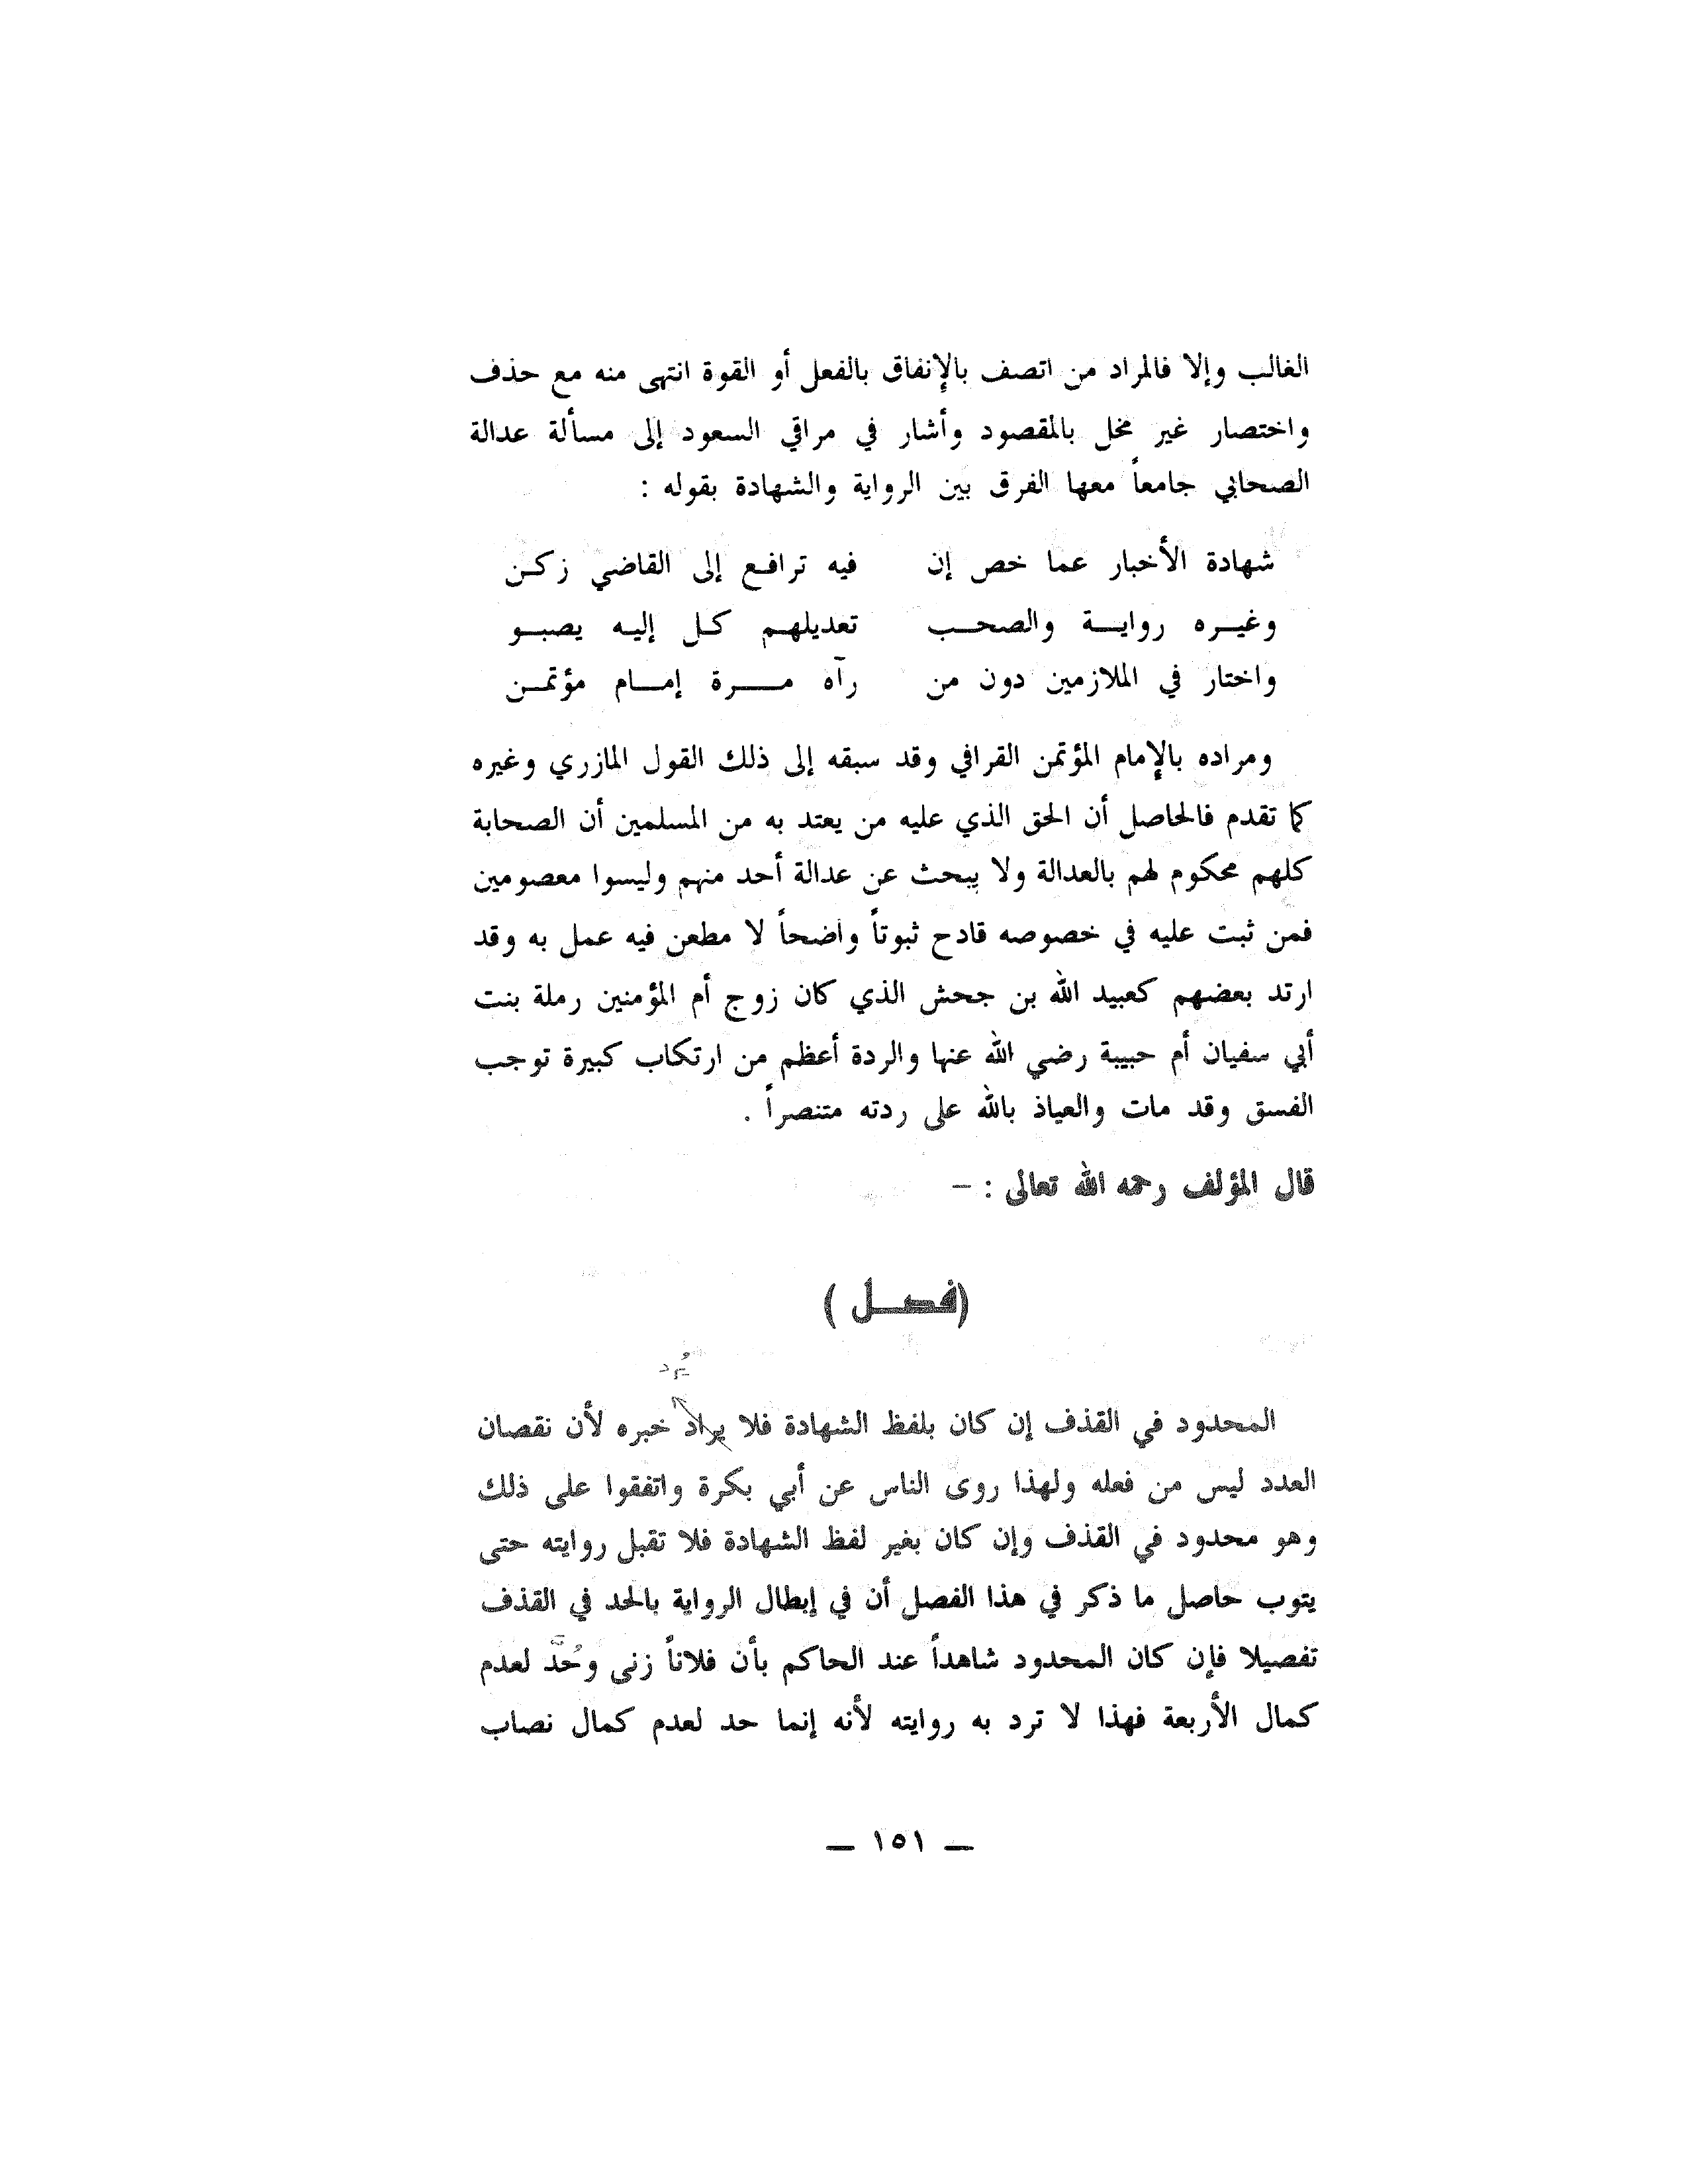 الغالب وإلا فالمراد من اتصف بالإنفاق بالفعل أو القوة انتهى منه مع حذف
واختصار غير مخل بالمقصود وأشار في مراقي السعود إلى مسألة عدالة
الصحابي جامعاً معها الفرق بين الرواية والشهادة بقوله :
شهادة الأخبار عما خص إن فيه ترافـع إلى القاضي زكـن
وغيـره روايـة والصحـب تعديلهـم كـل إليـه يصبـو
واختار في الملازمين دون من رآه مـرة إمـام مؤتمـن
ومراده بالإمام المؤتمن القرافي وقد سبقه إلى ذلك القول المازري وغيره
كما تقدم فالحاصل أن الحق الذي عليه من يعتد به من المسلمين أن الصحابة
كلهم محكوم لهم بالعدالة ولا يبحث عن عدالة أحد منهم وليسوا معصومين
فمن ثبت عليه في خصوصه قادح ثبوتاً واضحاً لا مطعن فيه عمل به وقد
ارتد بعضهم كعبيد الله بن جحش الذي كان زوج أم المؤمنين رملة بنت
أبي سفيان أم حبيبة رضي الله عنها والردة أعظم من ارتكاب كبيرة توجب
الفسق وقد مات والعياذ بالله على ردته متنصراً .
قال المؤلف رحمه الله تعالى : –
(فصـل )
يُرد
المحدود في القذف إن كان بلفظ الشهادة فلا يراد خبره لأن نقصان
العدد ليس من فعله ولهذا روى الناس عن أبي بكرة واتفقوا على ذلك
وهو محدود في القذف وإن كان بغير لفظ الشهادة فلا تقبل روايته حتى
يتوب حاصل ما ذكر في هذا الفصل أن في إبطال الرواية بالحد في القذف
تفصيلا فإن كان المحدود شاهداً عند الحاكم بأن فلاناً زنى وحُدَّ لعدم
كمال الأربعة فهذا لا ترد به روايته لأنه إنما حد لعدم كمال نصاب
— ١٥١ —